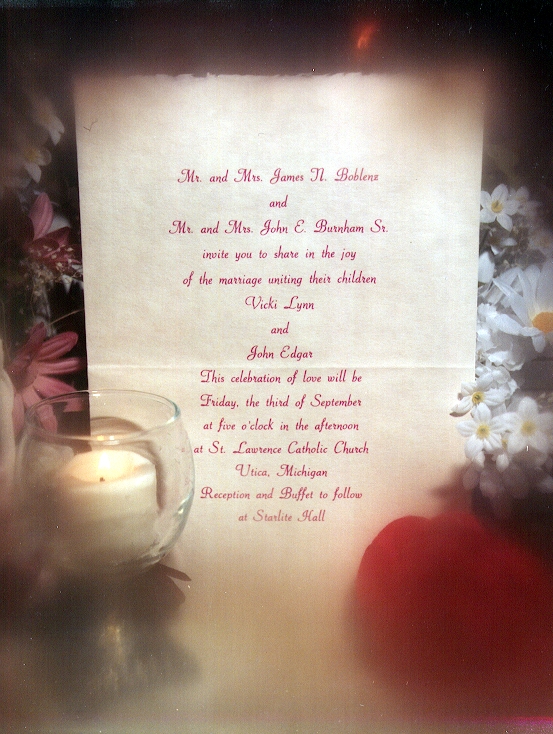 Mr. and Mrs. James N. Boblenz
and
Mr. and Mrs. John E. Burnham Sr.
invite you to share in the joy
of the marriage uniting their children
Vicki Lynn
and
John Edgar
This celebration of love will be
Friday, the third of September
at five o'clock in the afternoon
at St. Lawrence Catholic Church
Utica, Michigan
Reception and Buffet to follow
at Starlite Hall